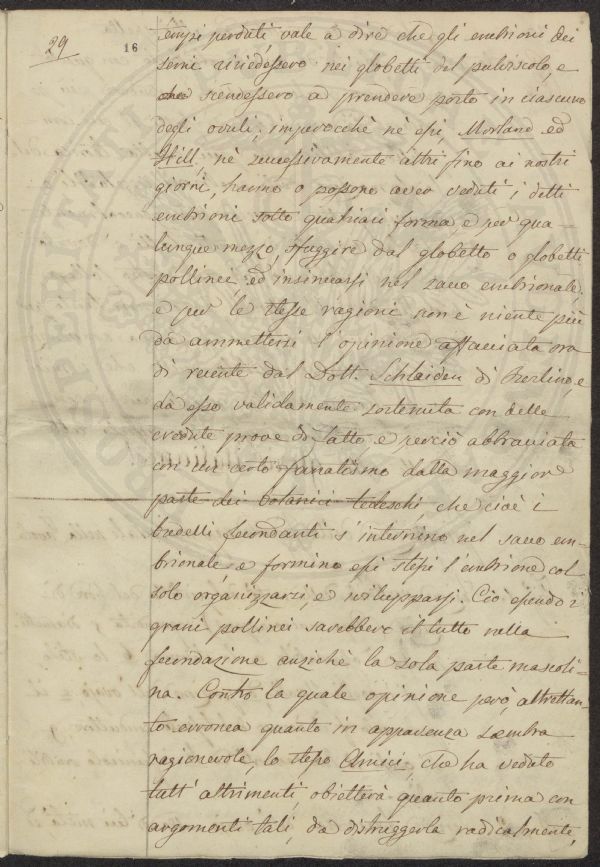 29
16
tempi perduti, vale a dire che gli embrioni dei
semi risiedessero nei globetti del pulviscolo, e
che scendessero a prendere posto in ciascuno
degli ovuli; imperocchè nè essi, Morland ed
Hill, nè successivamente altri fino ai nostri
giorni, hanno o possono aver veduti i detti
embrioni sotto qualsiasi forma, e per qua-
lunque mezzo, sfuggire dal globetto o globetti
pollinei, ed insinuarsi nel sacco embrionale;
e per le stesse ragioni non è niente più
da ammettersi l'opinione affacciata ora
di recente dal Dott. Schlaiden di Berlino, e
da esso validamente sostenuta con delle
credute prove di fatto e perciò abbraciata
con un certo fanatismo dalla maggior
parte dei botanici tedeschi, che cioè i
budelli fecondanti s'internino nel sacco em-
brionale e formino essi stessi l'embrione col
solo organizzarsi, e svilupparsi. Ciò essendo i
grani pollinei sarebbero il tutto nella
fecondazione anzichè la sola parte mascoli-
na. Contro la quale opinione però, altrettan-
to erronea quanto in apparenza sembra
ragionevole, lo stesso Amici, che ha veduto
tutt'altrimenti, obietterà quanto prima con
argomenti tali, da distruggerla radicalmente,